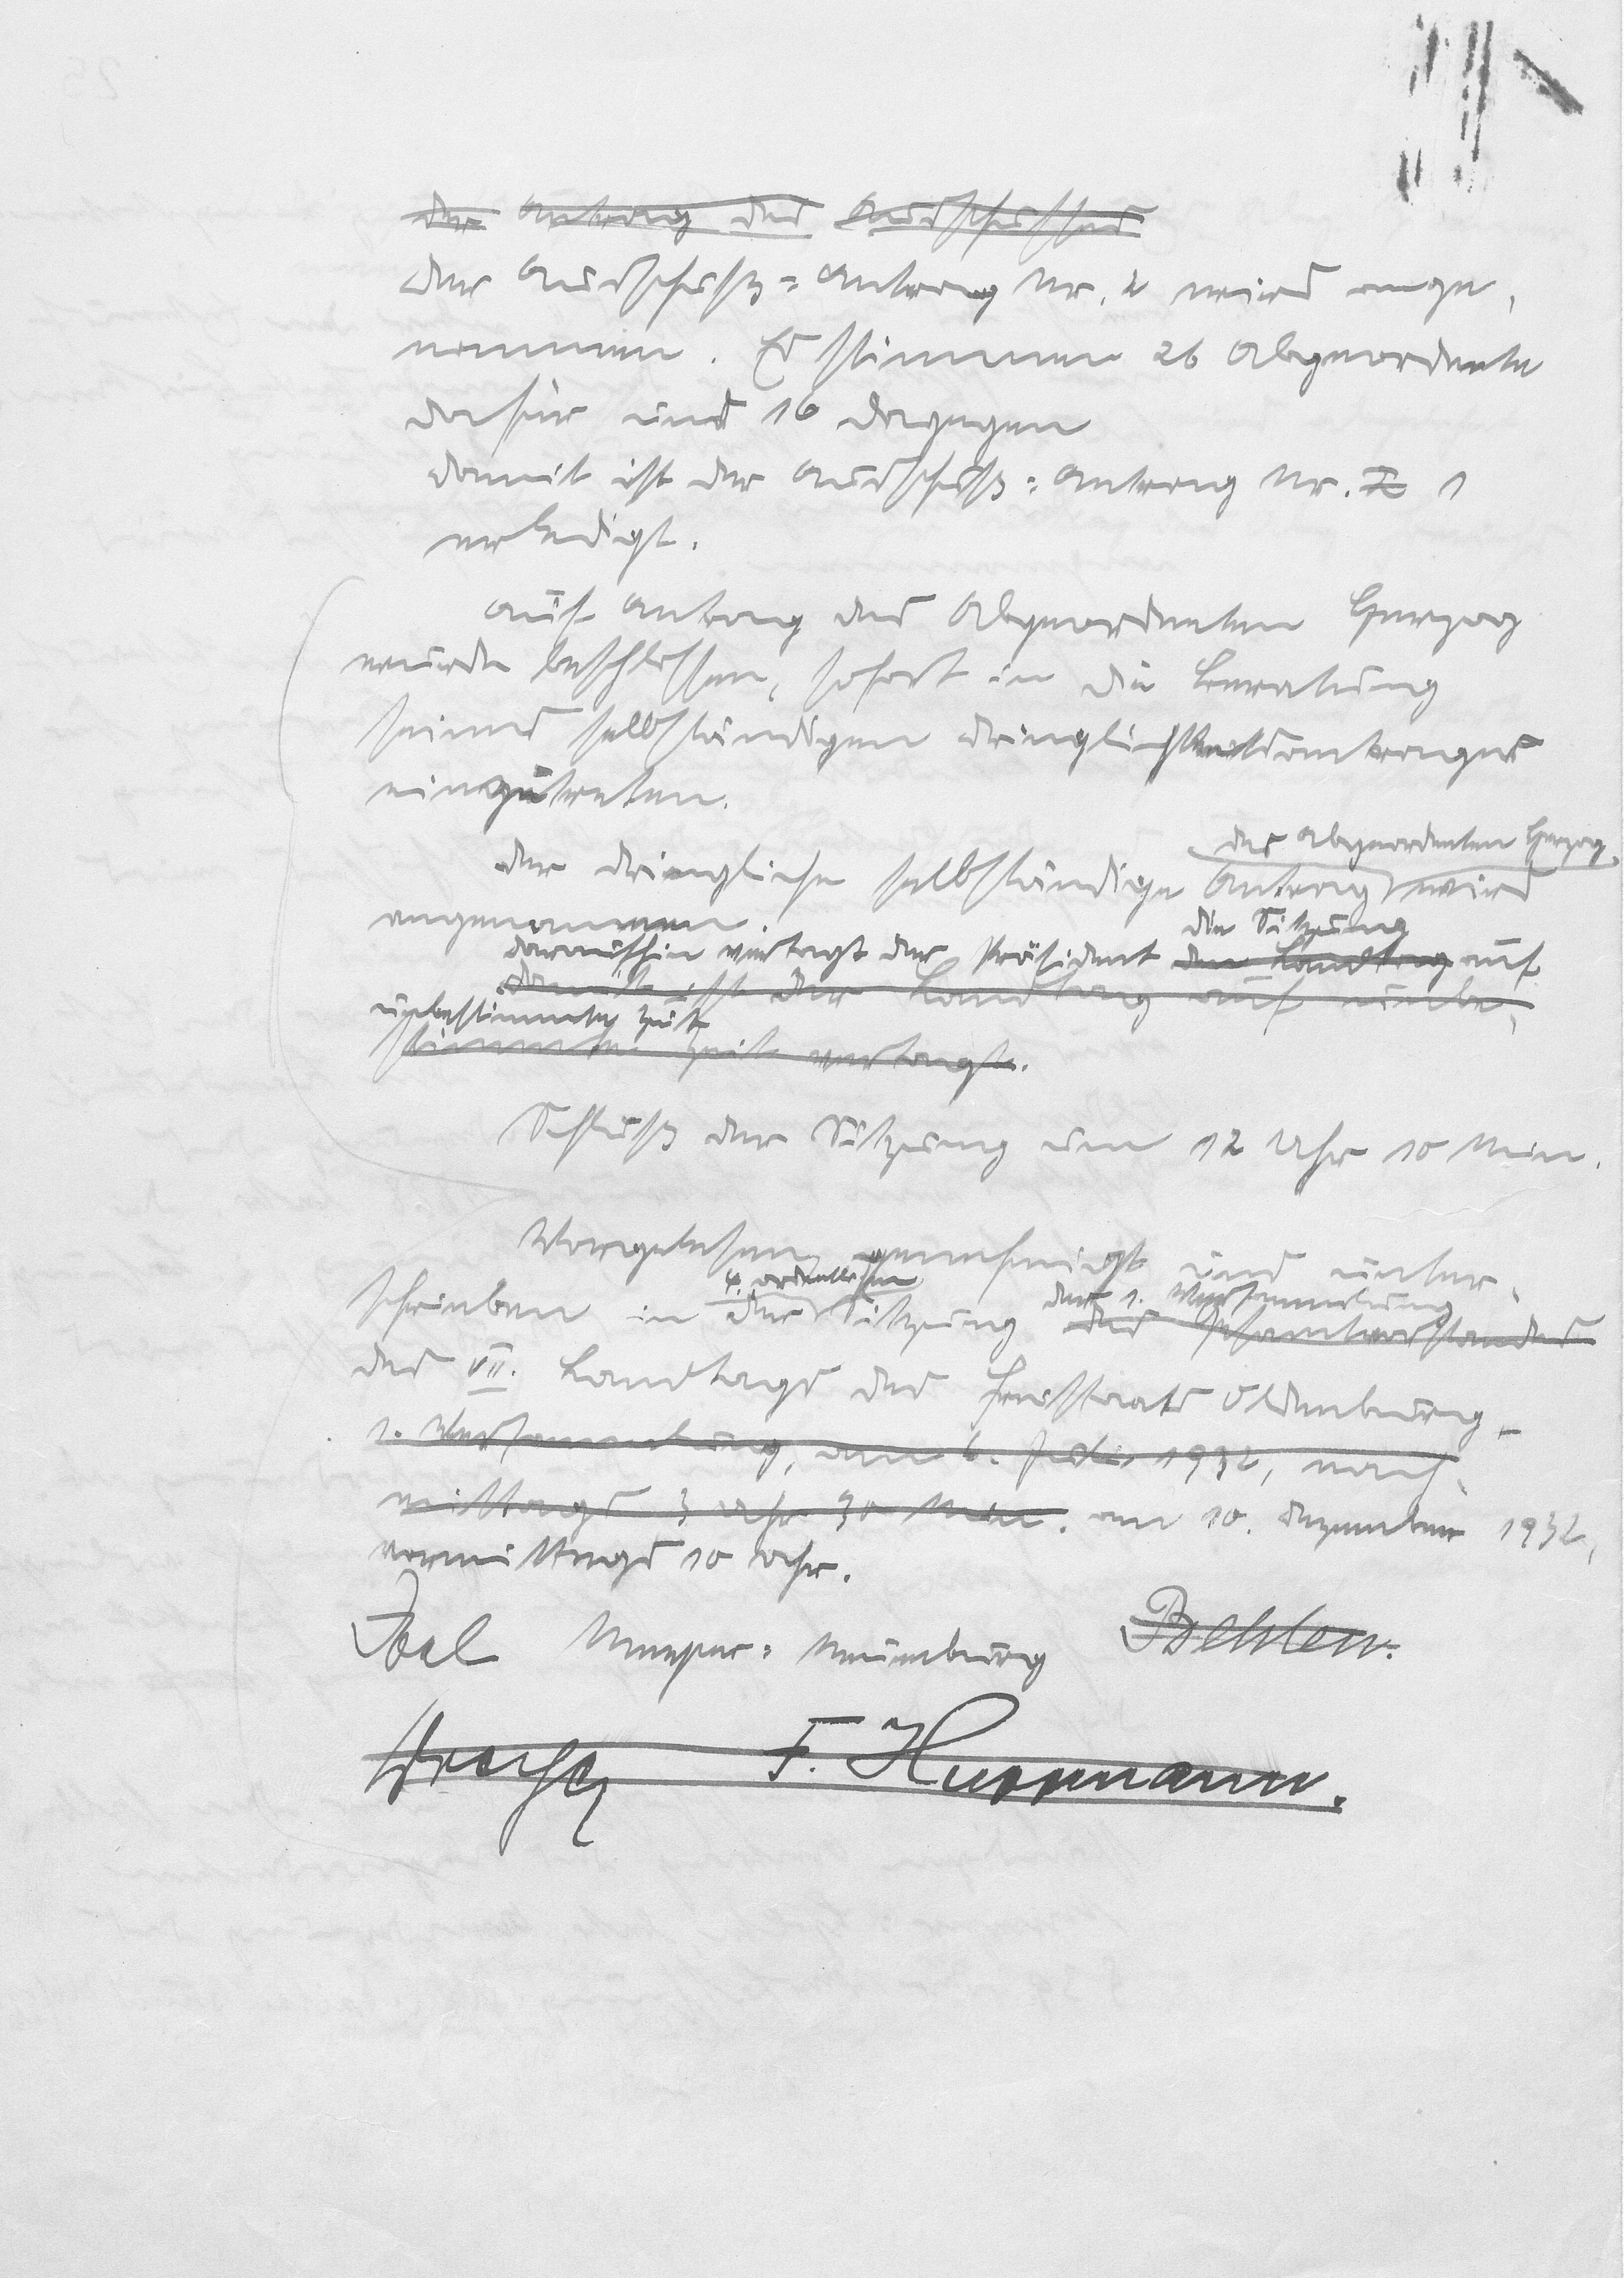 Der Antrag des Ausschusses
Der Ausschuß=Antrag Nr. 2 wird ange-
nommen. Es stimmen 26 Abgeordnete
dafür und 16 dagegen
Damit ist der Ausschuß=Antrag Nr. 1
erledigt.
Auf Antrag des Abgeordneten Herzog
wurde beschlossen, sofort in die Beratung
seines selbständigen Dringlichkeitsantrages
einzutreten.
des Abgeordneten Herzog
Der dringliche selbständige Antrag wird
angenommen.
die Sitzung
Daraufhin vertagt der Präsident den Landtag auf
Damit ist der Landtag auf unbe-
unbestimmte Zeit
stimmte Zeit vertagt.
Schluß der Sitzung um 12 Uhr 10 Min.
Vorgelesen, genehmigt und unter-
4. ordentlichen
der 1. Versammlung
schrieben in der Sitzung des Gesamtvorstandes
des VII. Landtags des Freistaats Oldenburg,
1. Versammlung, am 6. 1932, nach-
mittags 3 Uhr 30 Min. am 10. Dezember 1932,
vormittags 10 Uhr.
Joel Meyer=Neuenburg
F. Huppmann.